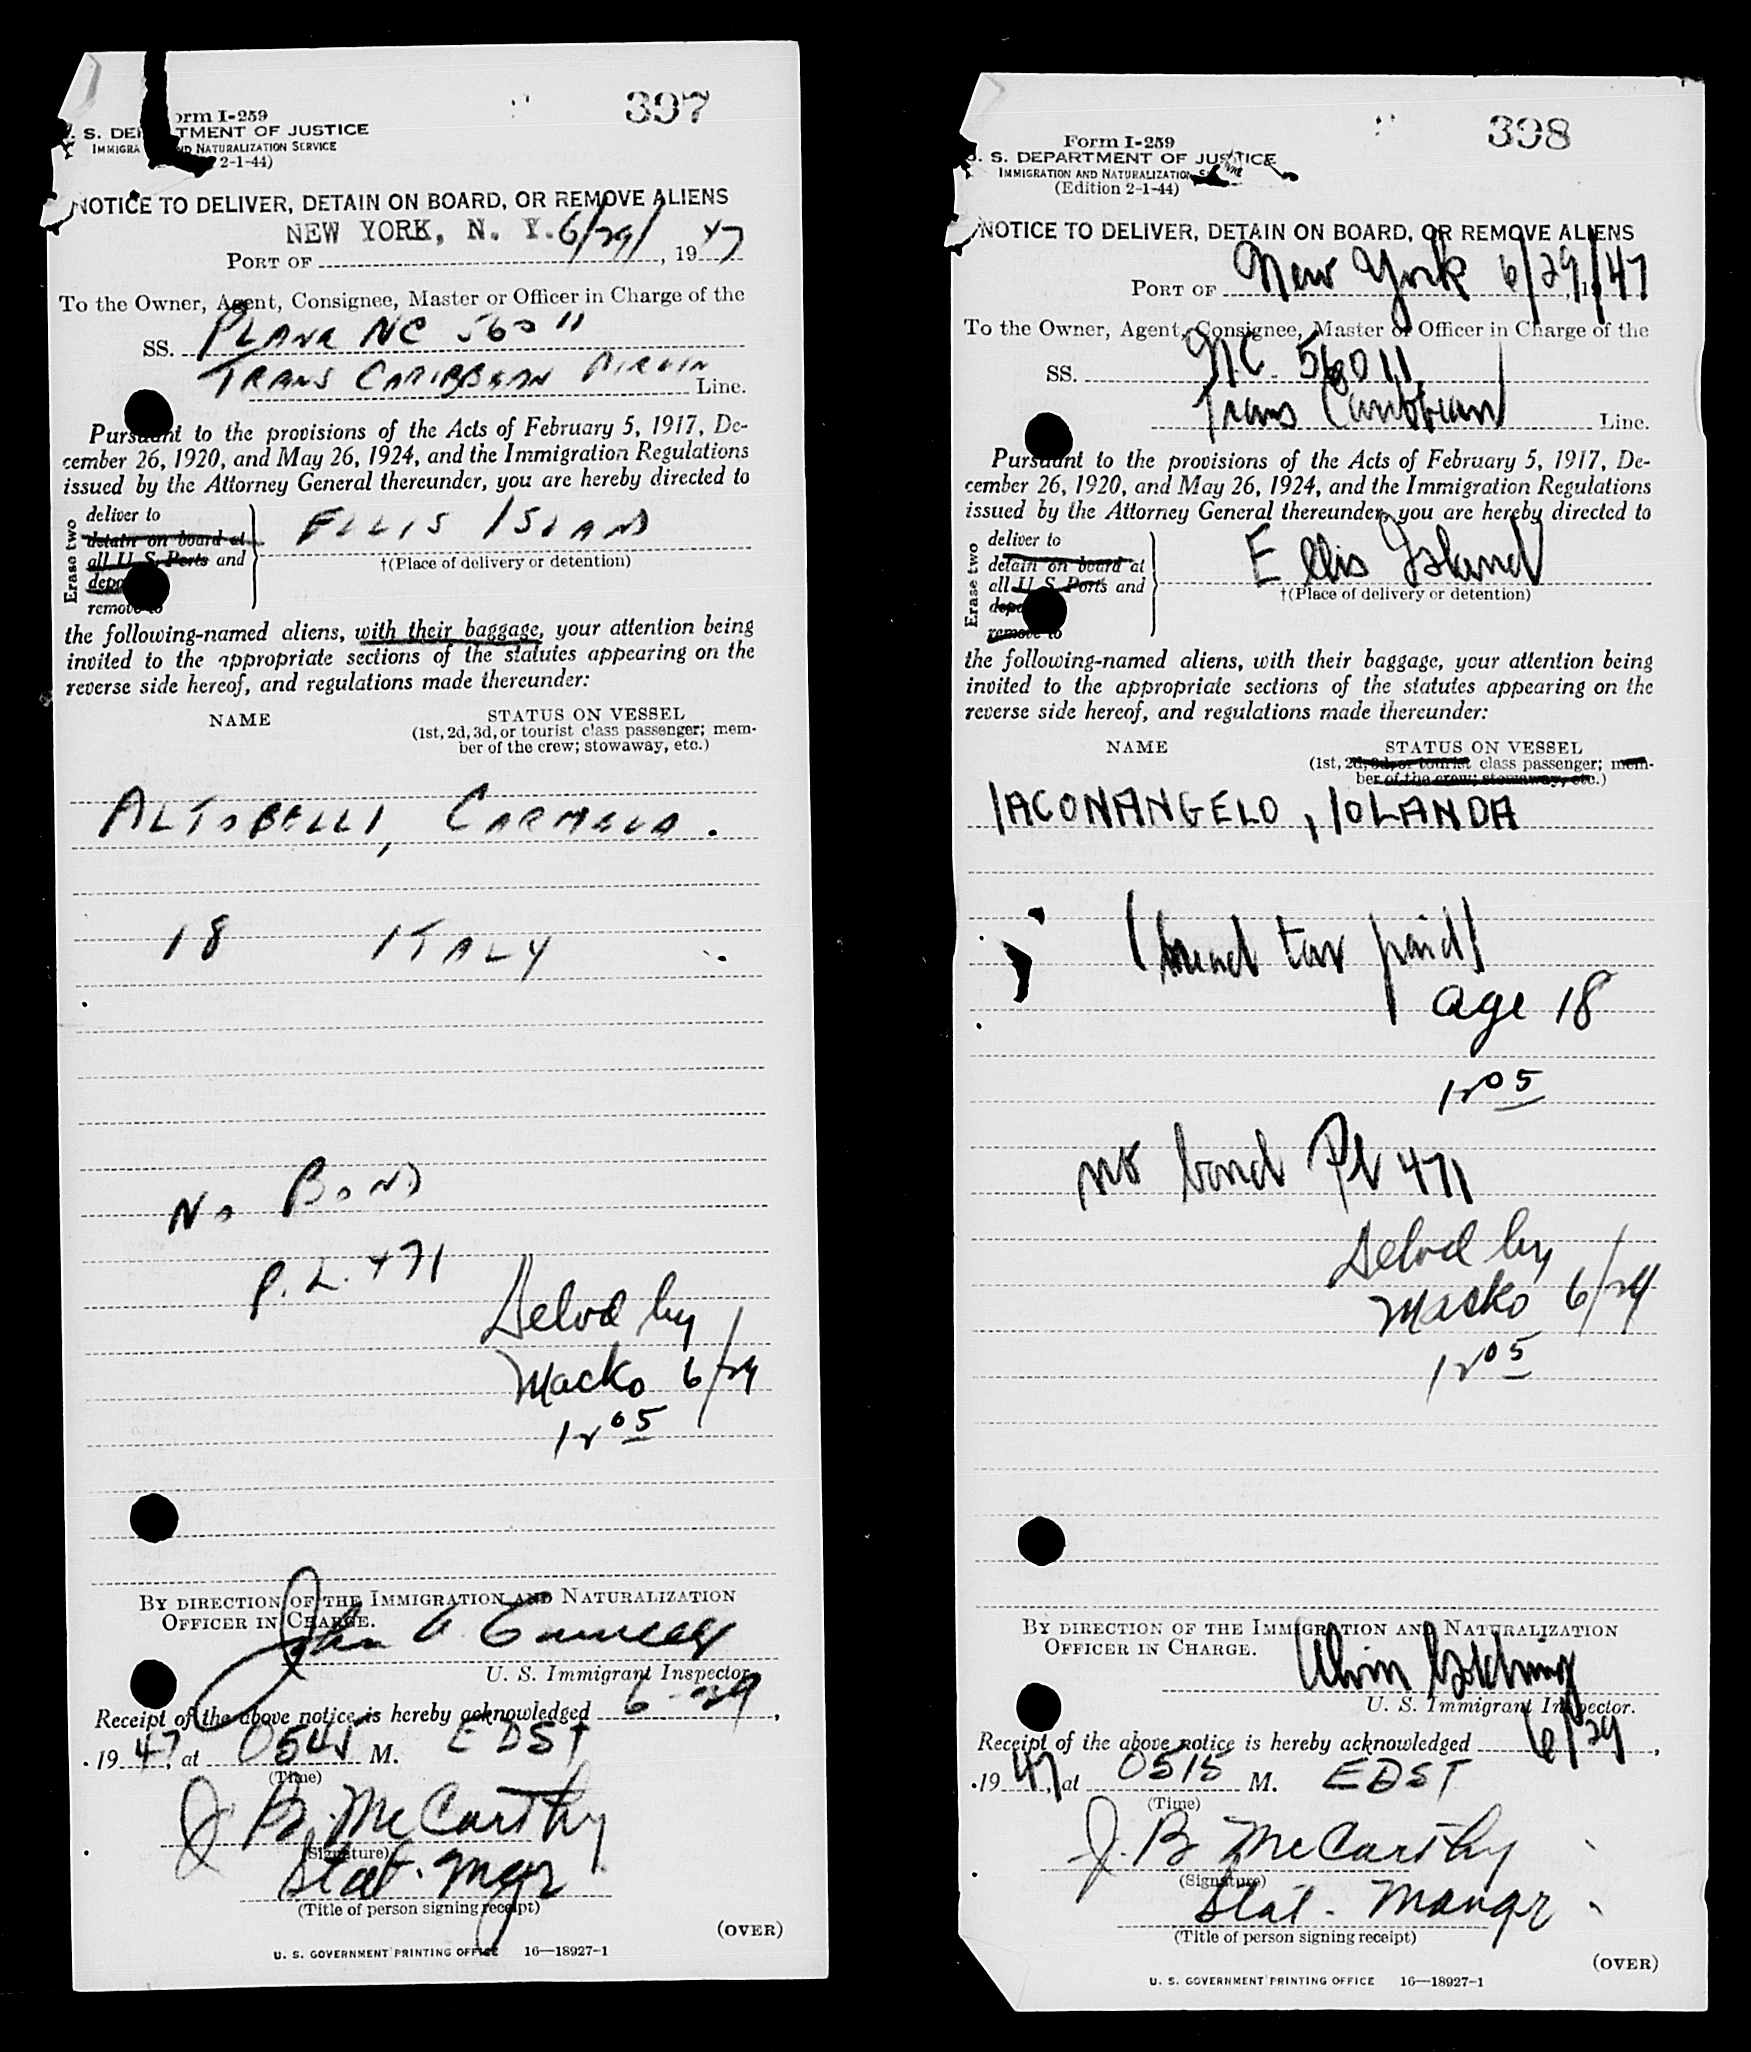 397
orm I-259
. S. DE TMENT OF JUSTICE
IMMIGRA ND NATURALIZATION SERVICE
2-1-44)
NOTICE TO DELIVER, DETAIN ON BOARD, OR REMOVE ALIENS
NEW YORK, N. Y. 6/29/
PORT OF , 19 47
To the Owner, Agent, Consignee, Master or Officer in Charge of the
SS. PLANE NC 56011
TRANS CARIBBEAN AIRLIN Line.
Pursuant to the provisions of the Acts of February 5, 1917, De-
cember 26, 1920, and May 26, 1924, and the Immigration Regulations
issued by the Attorney General thereunder, you are hereby directed to
Erase two
deliver to
detain on board at
all U. S. Ports and
depo
remove to
ELLIS ISLAND
†(Place of delivery or detention)
the following-named aliens, with their baggage, your attention being
invited to the appropriate sections of the statutes appearing on the
reverse side hereof, and regulations made thereunder:
NAME STATUS ON VESSEL
(1st, 2d, 3d, or tourist class passenger; mem-
ber of the crew; stowaway, etc.)
ALTOBELLI, CARMELA.
18 ITALY
No BOND
P. L. 471
Delvd by
Macko 6/29
12 05
BY DIRECTION OF THE IMMIGRATION AND NATURALIZATION
OFFICER IN CHARGE.
John
U. S. Immigrant Inspector
Receipt of the above notice is hereby acknowledged 6-29,
19 47, at 0545 M. EDST
(Time)
J B. McCarthy
(Signature)
Stat. Mgr
(Title of person signing receipt)
(OVER)
U. S. GOVERNMENT PRINTING OFFICE 16—18927-1
398
Form I-259
. S. DEPARTMENT OF JUSTICE
IMMIGRATION AND NATURALIZATION
(Edition 2-1-44)
NOTICE TO DELIVER, DETAIN ON BOARD, OR REMOVE ALIENS
PORT OF New York 6/29/47
To the Owner, Agent, Consignee, Master or Officer in Charge of the
SS. NC 56011
Trans Caribbean Line.
Pursuant to the provisions of the Acts of February 5, 1917, De-
cember 26, 1920, and May 26, 1924, and the Immigration Regulations
issued by the Attorney General thereunder, you are hereby directed to
Erase two
deliver to
detain on board at
all U. S. Ports and
depo
remove to
Ellis Island
†(Place of delivery or detention)
the following-named aliens, with their baggage, your attention being
invited to the appropriate sections of the statutes appearing on the
reverse side hereof, and regulations made thereunder:
NAME STATUS ON VESSEL
(1st, 2d, 3d, or tourist class passenger; mem-
ber of the crew; stowaway, etc.)
IACONANGELO, IOLANDA
(head tax paid)
age 18
12 05
no bond PL 471
Delvd by
Macko 6/29
12 05
BY DIRECTION OF THE IMMIGRATION AND NATURALIZATION
OFFICER IN CHARGE.
Alvin
U. S. Immigrant Inspector.
Receipt of the above notice is hereby acknowledged 6/29,
19 47, at 0515 M. EDST
(Time)
J. B McCarthy
(Signature)
Stat. Mangr
(Title of person signing receipt)
(OVER)
U. S. GOVERNMENT PRINTING OFFICE 16—18927-1